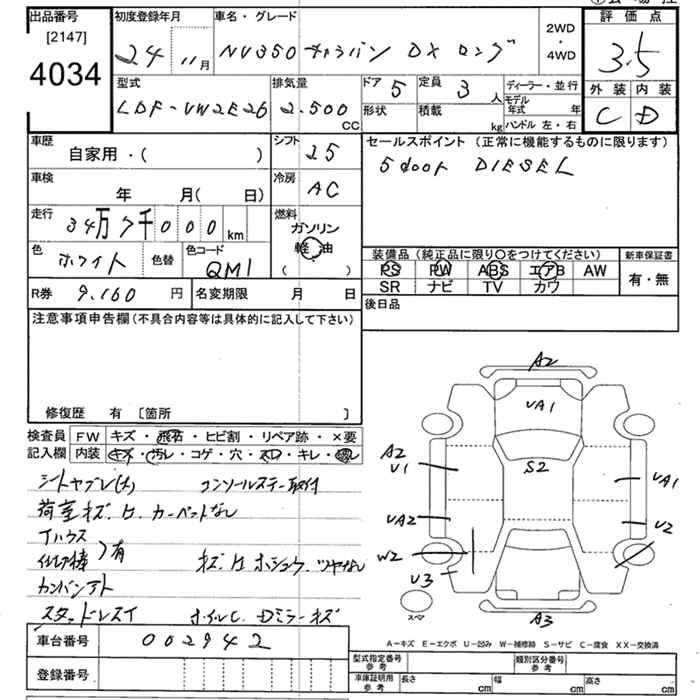 出品番号
[2147]
4034
初度登録年月
24 11月
車名・グレード
NV350 キャラバン DX ロング
2WD
・
4WD
評価点
3.5
外装 内装
C D
型式
LDF-VW2E26
排気量
2.500
CC
ドア 5
定員 3 人
形状
積載 kg
ディーラー・並行
モデル年式 年
ハンドル 左・右
車歴
自家用・( )
シフト 25
車検
年 月( 日)
冷房 AC
走行 34万7千000km
燃料
ガソリン
軽油
( )
色 ホワイト
色替
色コード QM1
R券 9.160 円
名変期限 月 日
セールスポイント(正常に機能するものに限ります)
5door DIESEL
装備品(純正品に限り○をつけてください)
新車保証書
PS PW ABS エアB AW
SR ナビ TV カワ
有・無
後日品
注意事項申告欄(不具合内容等は具体的に記入して下さい)
修復歴 有 [箇所 ]
検査員記入欄
FW キズ・飛石・ヒビ割・リペア跡・×要
内装 キズ・汚レ・コゲ・穴・スレ・キレ・
シートヤブレ(大) コンソールステー取付
荷室キズ.ヒ.カーペットなし
Tハウス
有
キズ.ヒ.ホシュウ.ツヤなし
カンバンアト
スタッドレスイ ホイルC.Dミラーキズ
車台番号 002942
登録番号
A2
VA1
S2
A2
V1
VA2
W2
V3
VA1
V2
A3
スペア
A－キズ E－エクボ U－凹み W－補修跡 S－サビ C－腐食 XX－交換済
型式指定番号
参考
類別区分番号
参考
車庫証明用
参考
長さ cm
幅 cm
高さ cm